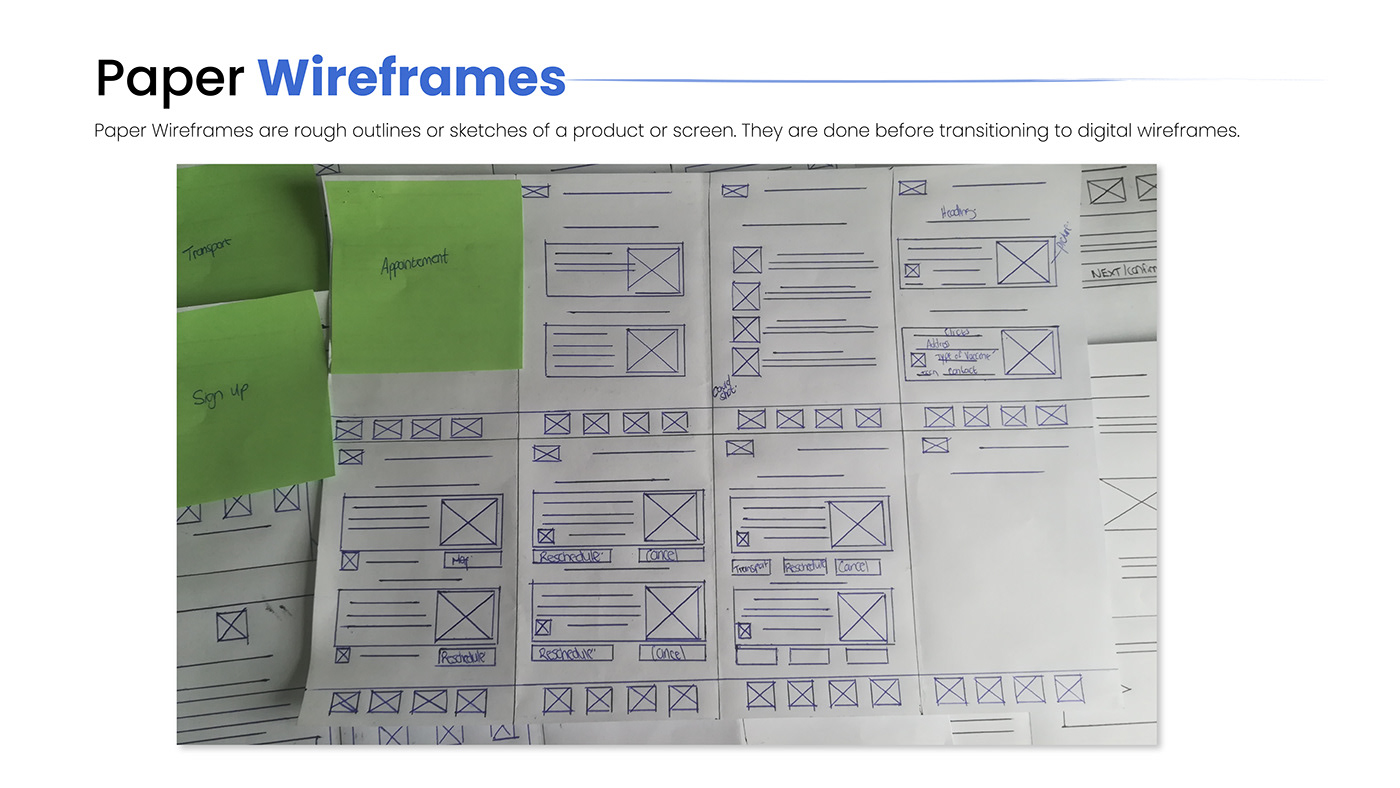 Paper Wireframes
Paper Wireframes are rough outlines or sketches of a product or screen. They are done before transitioning to digital wireframes.
Transport
Appointement
Sign up
Headings
Address
Type of Vaccine
contact
NEXT/Confirm
Map
Reschedule
Reschedule
Cancel
Reschedule
Cancel
Transport
Reschedule
Cancel